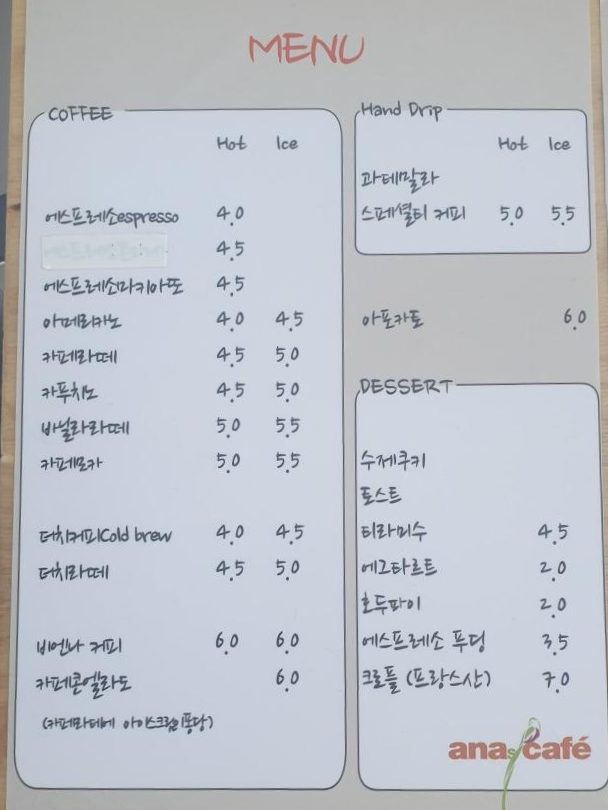 MENU
COFFEE
Hot Ice
에스프레소espresso 4.0
4.5
에스프레소마키아또 4.5
아메리카노 4.0 4.5
카페라떼 4.5 5.0
카푸치노 4.5 5.0
바닐라라떼 5.0 5.5
카페모카 5.0 5.5
더치커피Cold brew 4.0 4.5
더치라떼 4.5 5.0
비엔나 커피 6.0 6.0
카페콘엘라도 6.0
(카페라테에 아이스크림퐁당)
Hand Drip
Hot Ice
과테말라
스페셜티 커피 5.0 5.5
아포카토 6.0
DESSERT
수제쿠키
토스트
티라미수 4.5
에그타르트 2.0
호두파이 2.0
에스프레소 푸딩 3.5
크로플 (프랑스산) 7.0
anas café